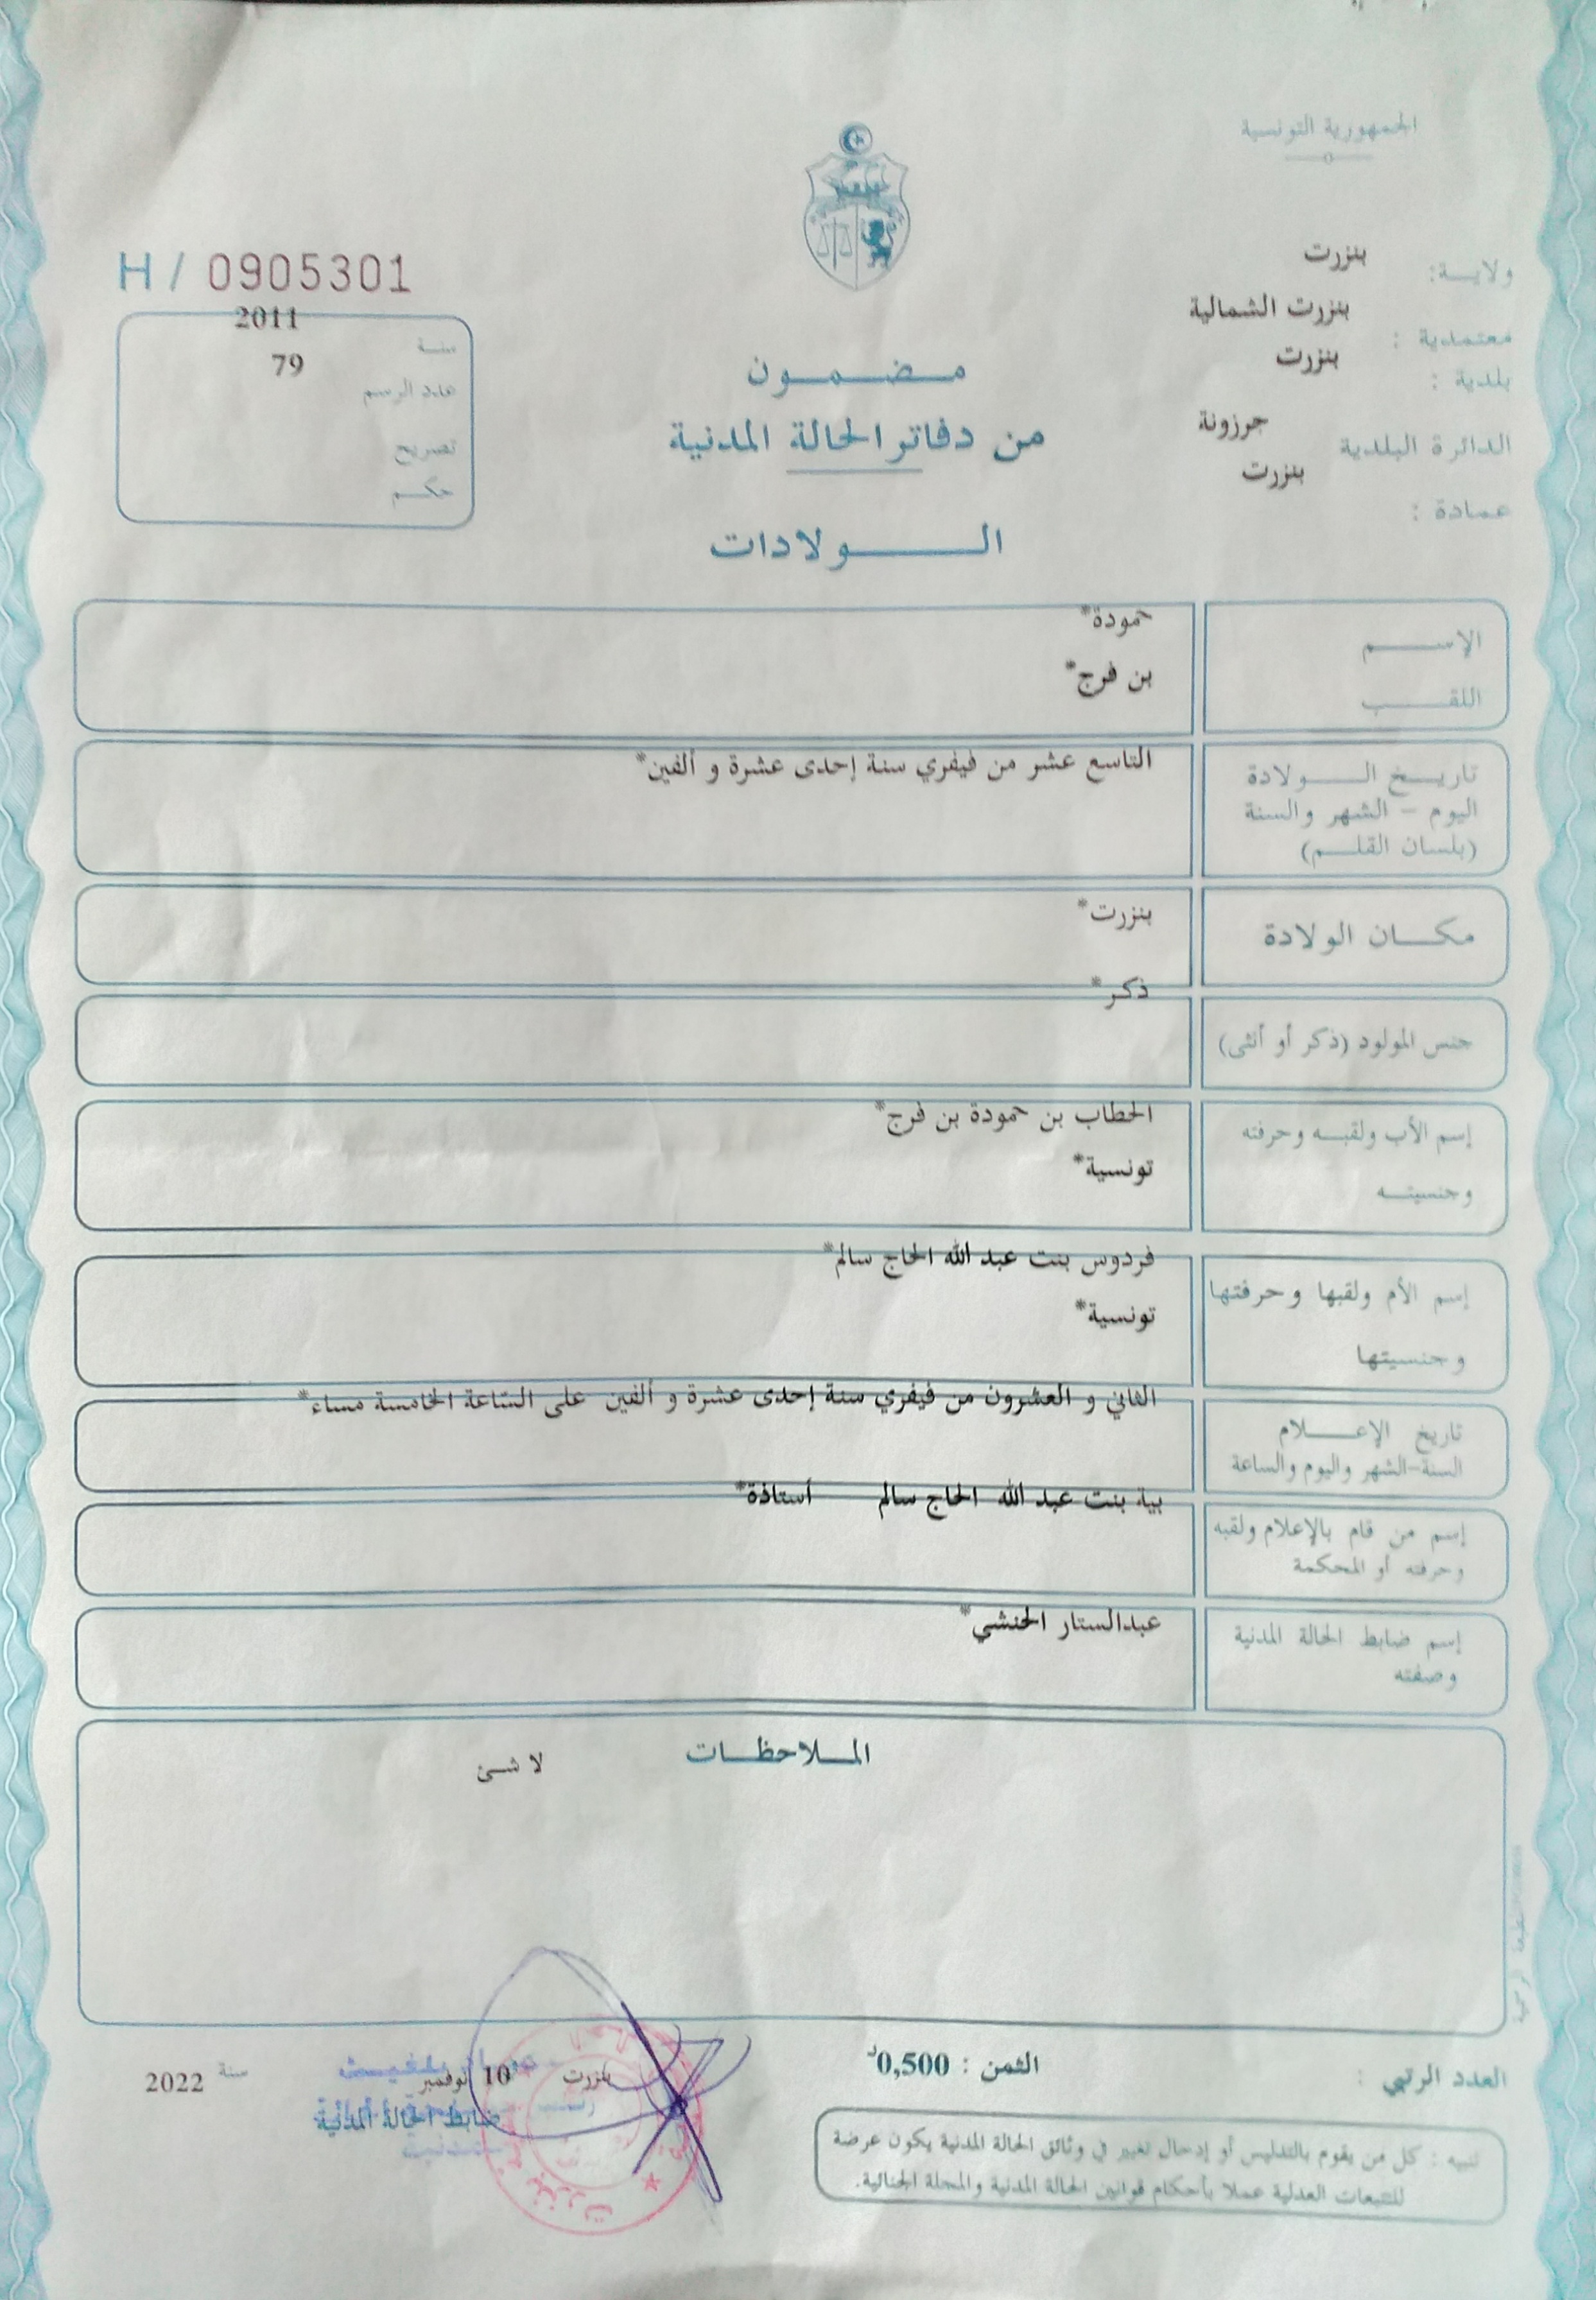 الجمهورية التونسية
ولاية: بنزرت
معتمدية : بنزرت الشمالية
بلدية : بنزرت
الدائرة البلدية جرزونة
عمادة : بنزرت
H / 0905301
سنة 2011
عدد الرسم 79
تصريح
حكم
مضمون
من دفاتر الحالة المدنية
الولادات
الإسم حمودة*
اللقب بن فرج*
تاريخ الولادة التاسع عشر من فيفري سنة إحدى عشرة و ألفين*
اليوم - الشهر والسنة
(بلسان القلم)
مكان الولادة بنزرت*
جنس المولود (ذكر أو أنثى) ذكر*
إسم الأب ولقبه وحرفته الحطاب بن حمودة بن فرج*
وجنسيته تونسية*
إسم الأم ولقبها وحرفتها فردوس بنت عبد الله الحاج سالم*
وجنسيتها تونسية*
تاريخ الإعلام الثاني و العشرون من فيفري سنة إحدى عشرة و ألفين على الساعة الخامسة مساء*
السنة-الشهر واليوم والساعة
إسم من قام بالإعلام ولقبه بية بنت عبد الله الحاج سالم أستاذة*
وحرفته أو المحكمة
إسم ضابط الحالة المدنية عبدالستار الحنشي*
وصفته
الملاحظات
لا شئ
العدد الرتبي :
الثمن : 0,500د
بنزرت 10 نوفمبر سنة 2022
ضابط الحالة المدنية
تنبيه : كل من يقوم بالتدليس أو إدخال تغيير في وثائق الحالة المدنية يكون عرضة
للتتبعات العدلية عملا بأحكام قوانين الحالة المدنية والمجلة الجنائية.